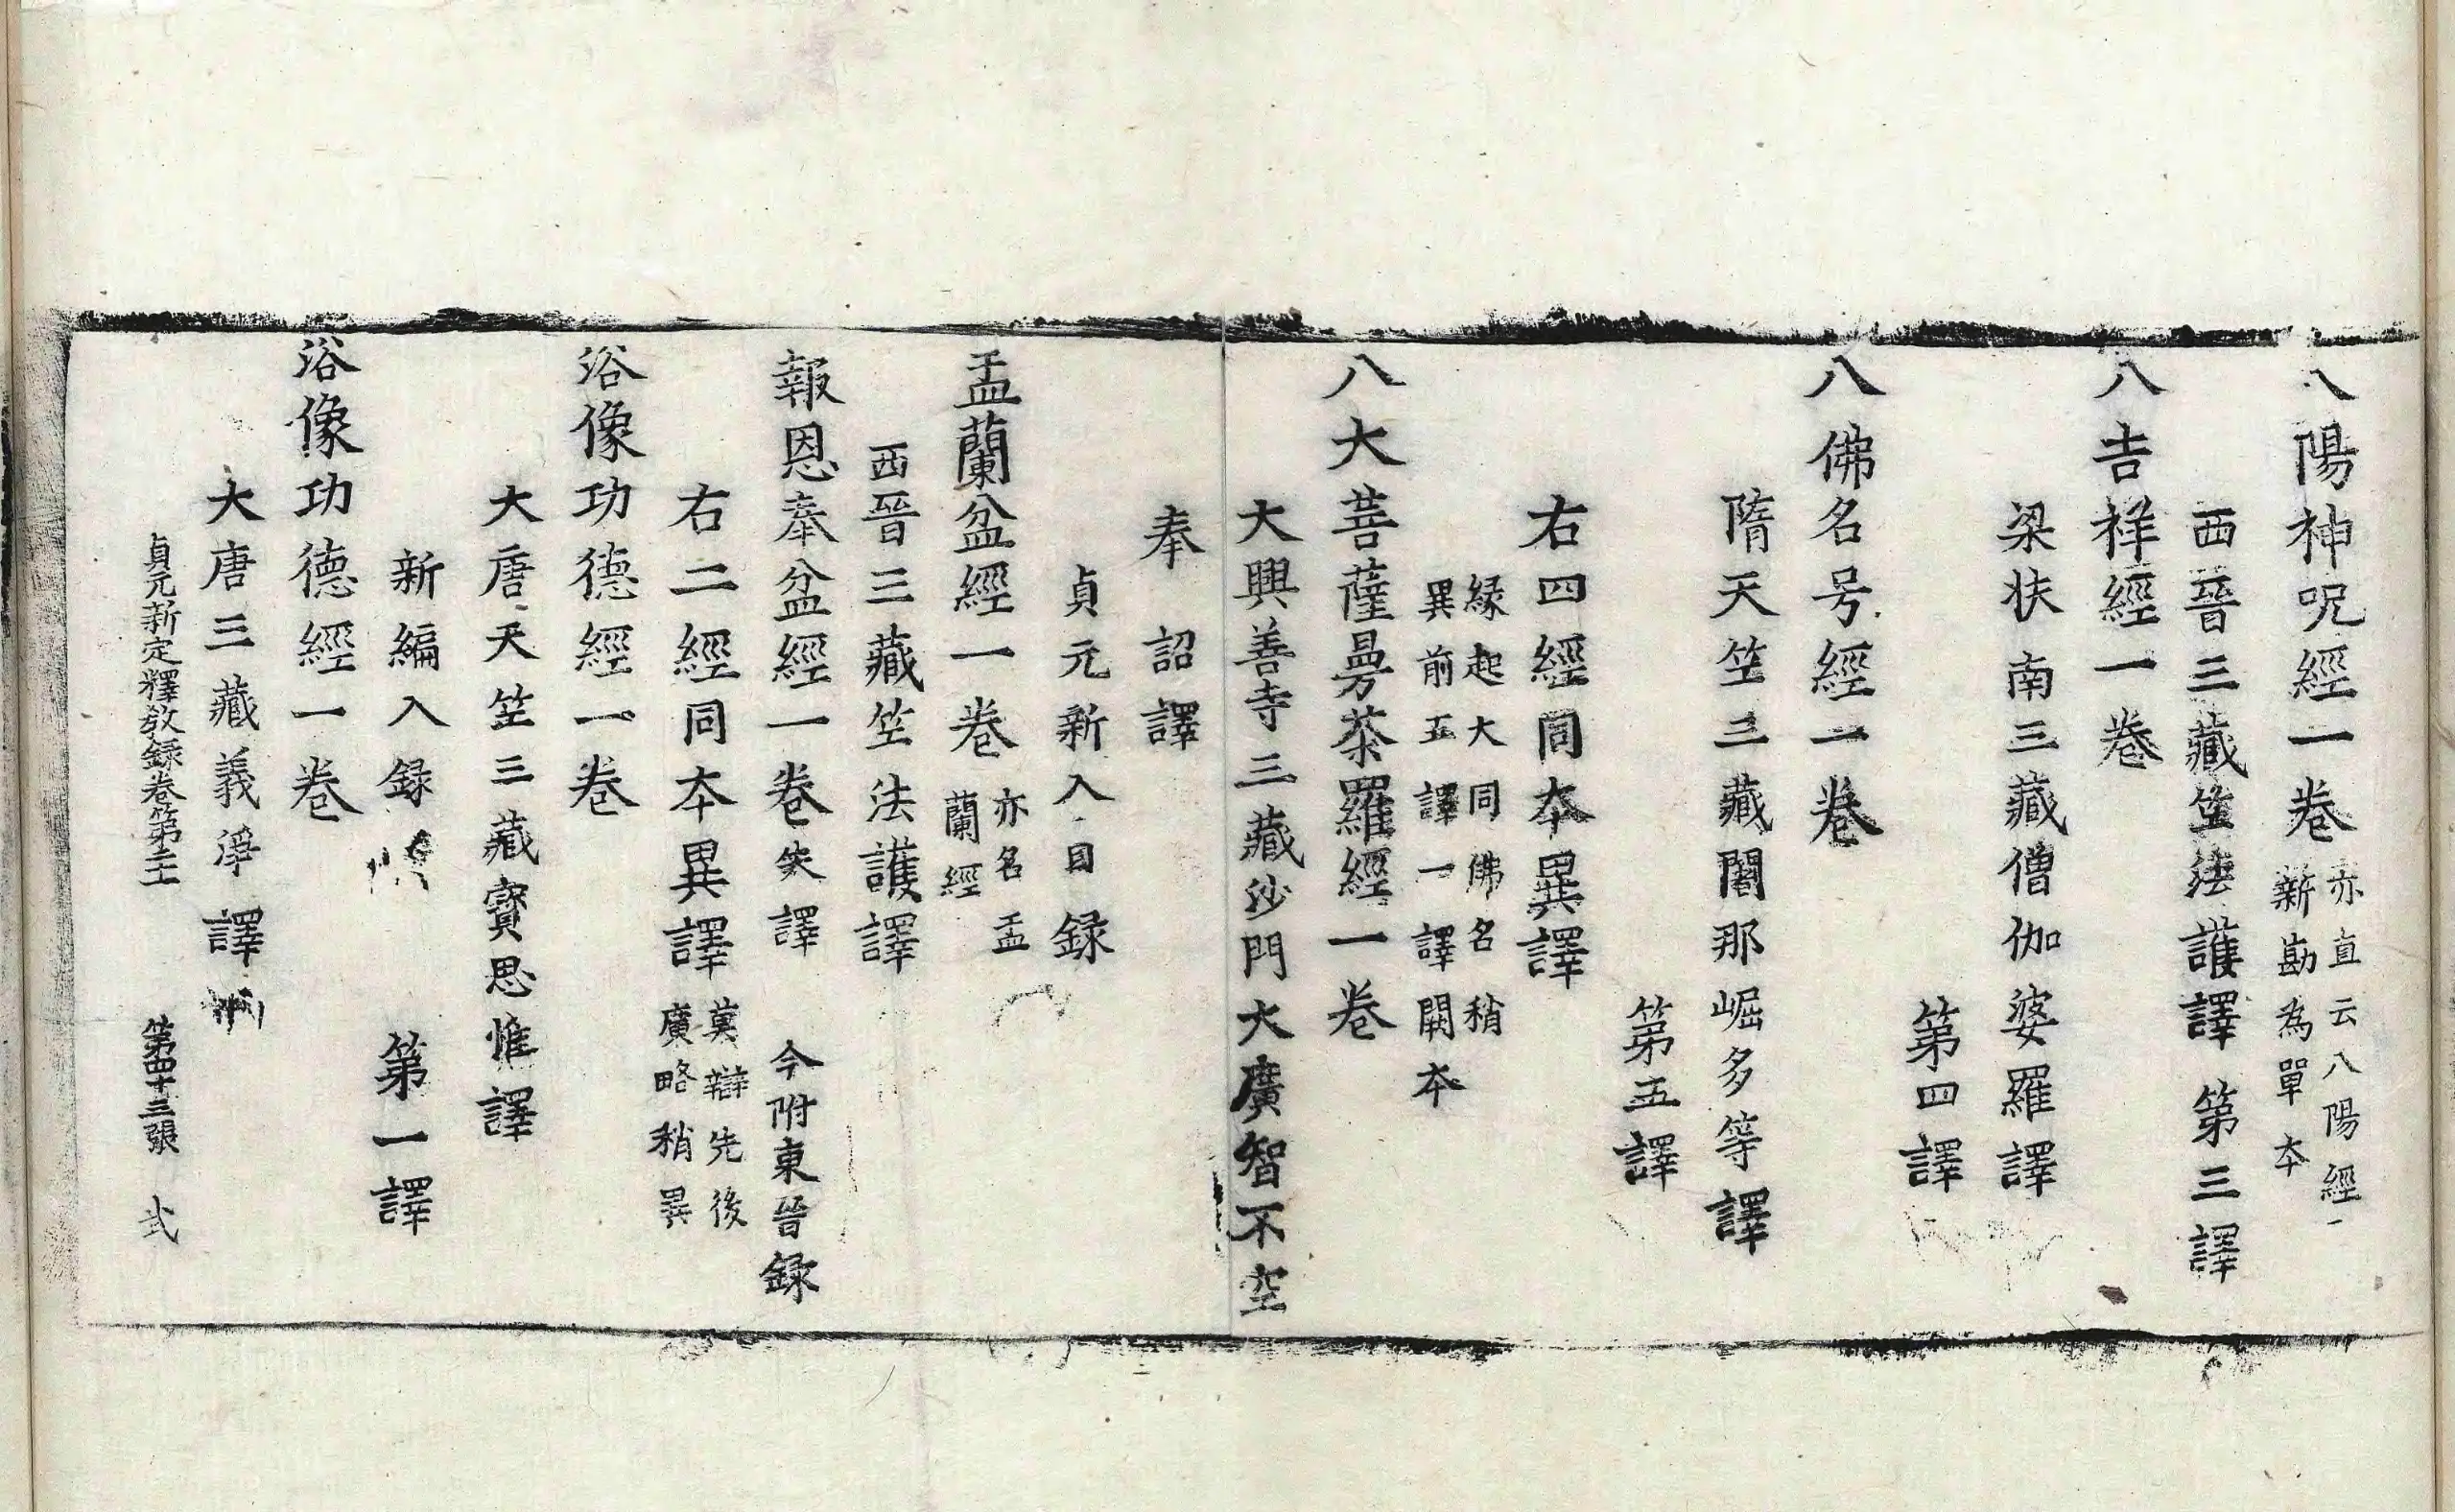 八陽神呪經一卷亦直云八陽經新勘為單本
西晉三藏竺法護譯第三譯
八吉祥經一卷
梁扶南三藏僧伽婆羅譯
第四譯
八佛名号經一卷
隋天竺三藏闍那崛多等譯
第五譯
右四經同本異譯
緣起大同佛名稍
異前五譯一譯闕本
八大菩薩曼荼羅經一卷
大興善寺三藏沙門大廣智不空
奉 詔譯
貞元新入目錄
盂蘭盆經一卷亦名盂蘭經
西晉三藏竺法護譯
報恩奉盆經一卷失譯 今附東晉錄
右二經同本異譯莫辯先後廣略稍異
浴像功德經一卷
大唐天竺三藏寶思惟譯
新編入錄 第一譯
浴像功德經一卷
大唐三藏義淨譯
貞元新定釋教錄卷第二十 第四十三張 弐